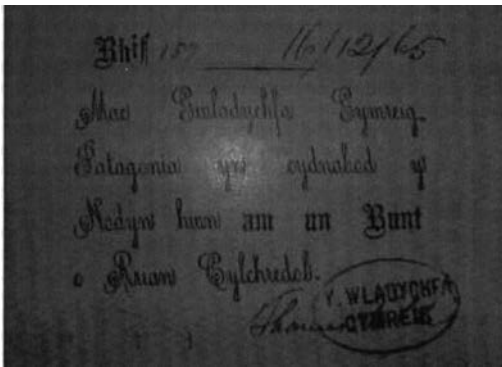 Rhif 16/12/65
Mae Gwladychfa Gymreig
Patagonia yn cydnabod y
Nodyn hwn am un Bunt
o Arian Cylchredol.
Y. WLADYCHFA
GYMREIG